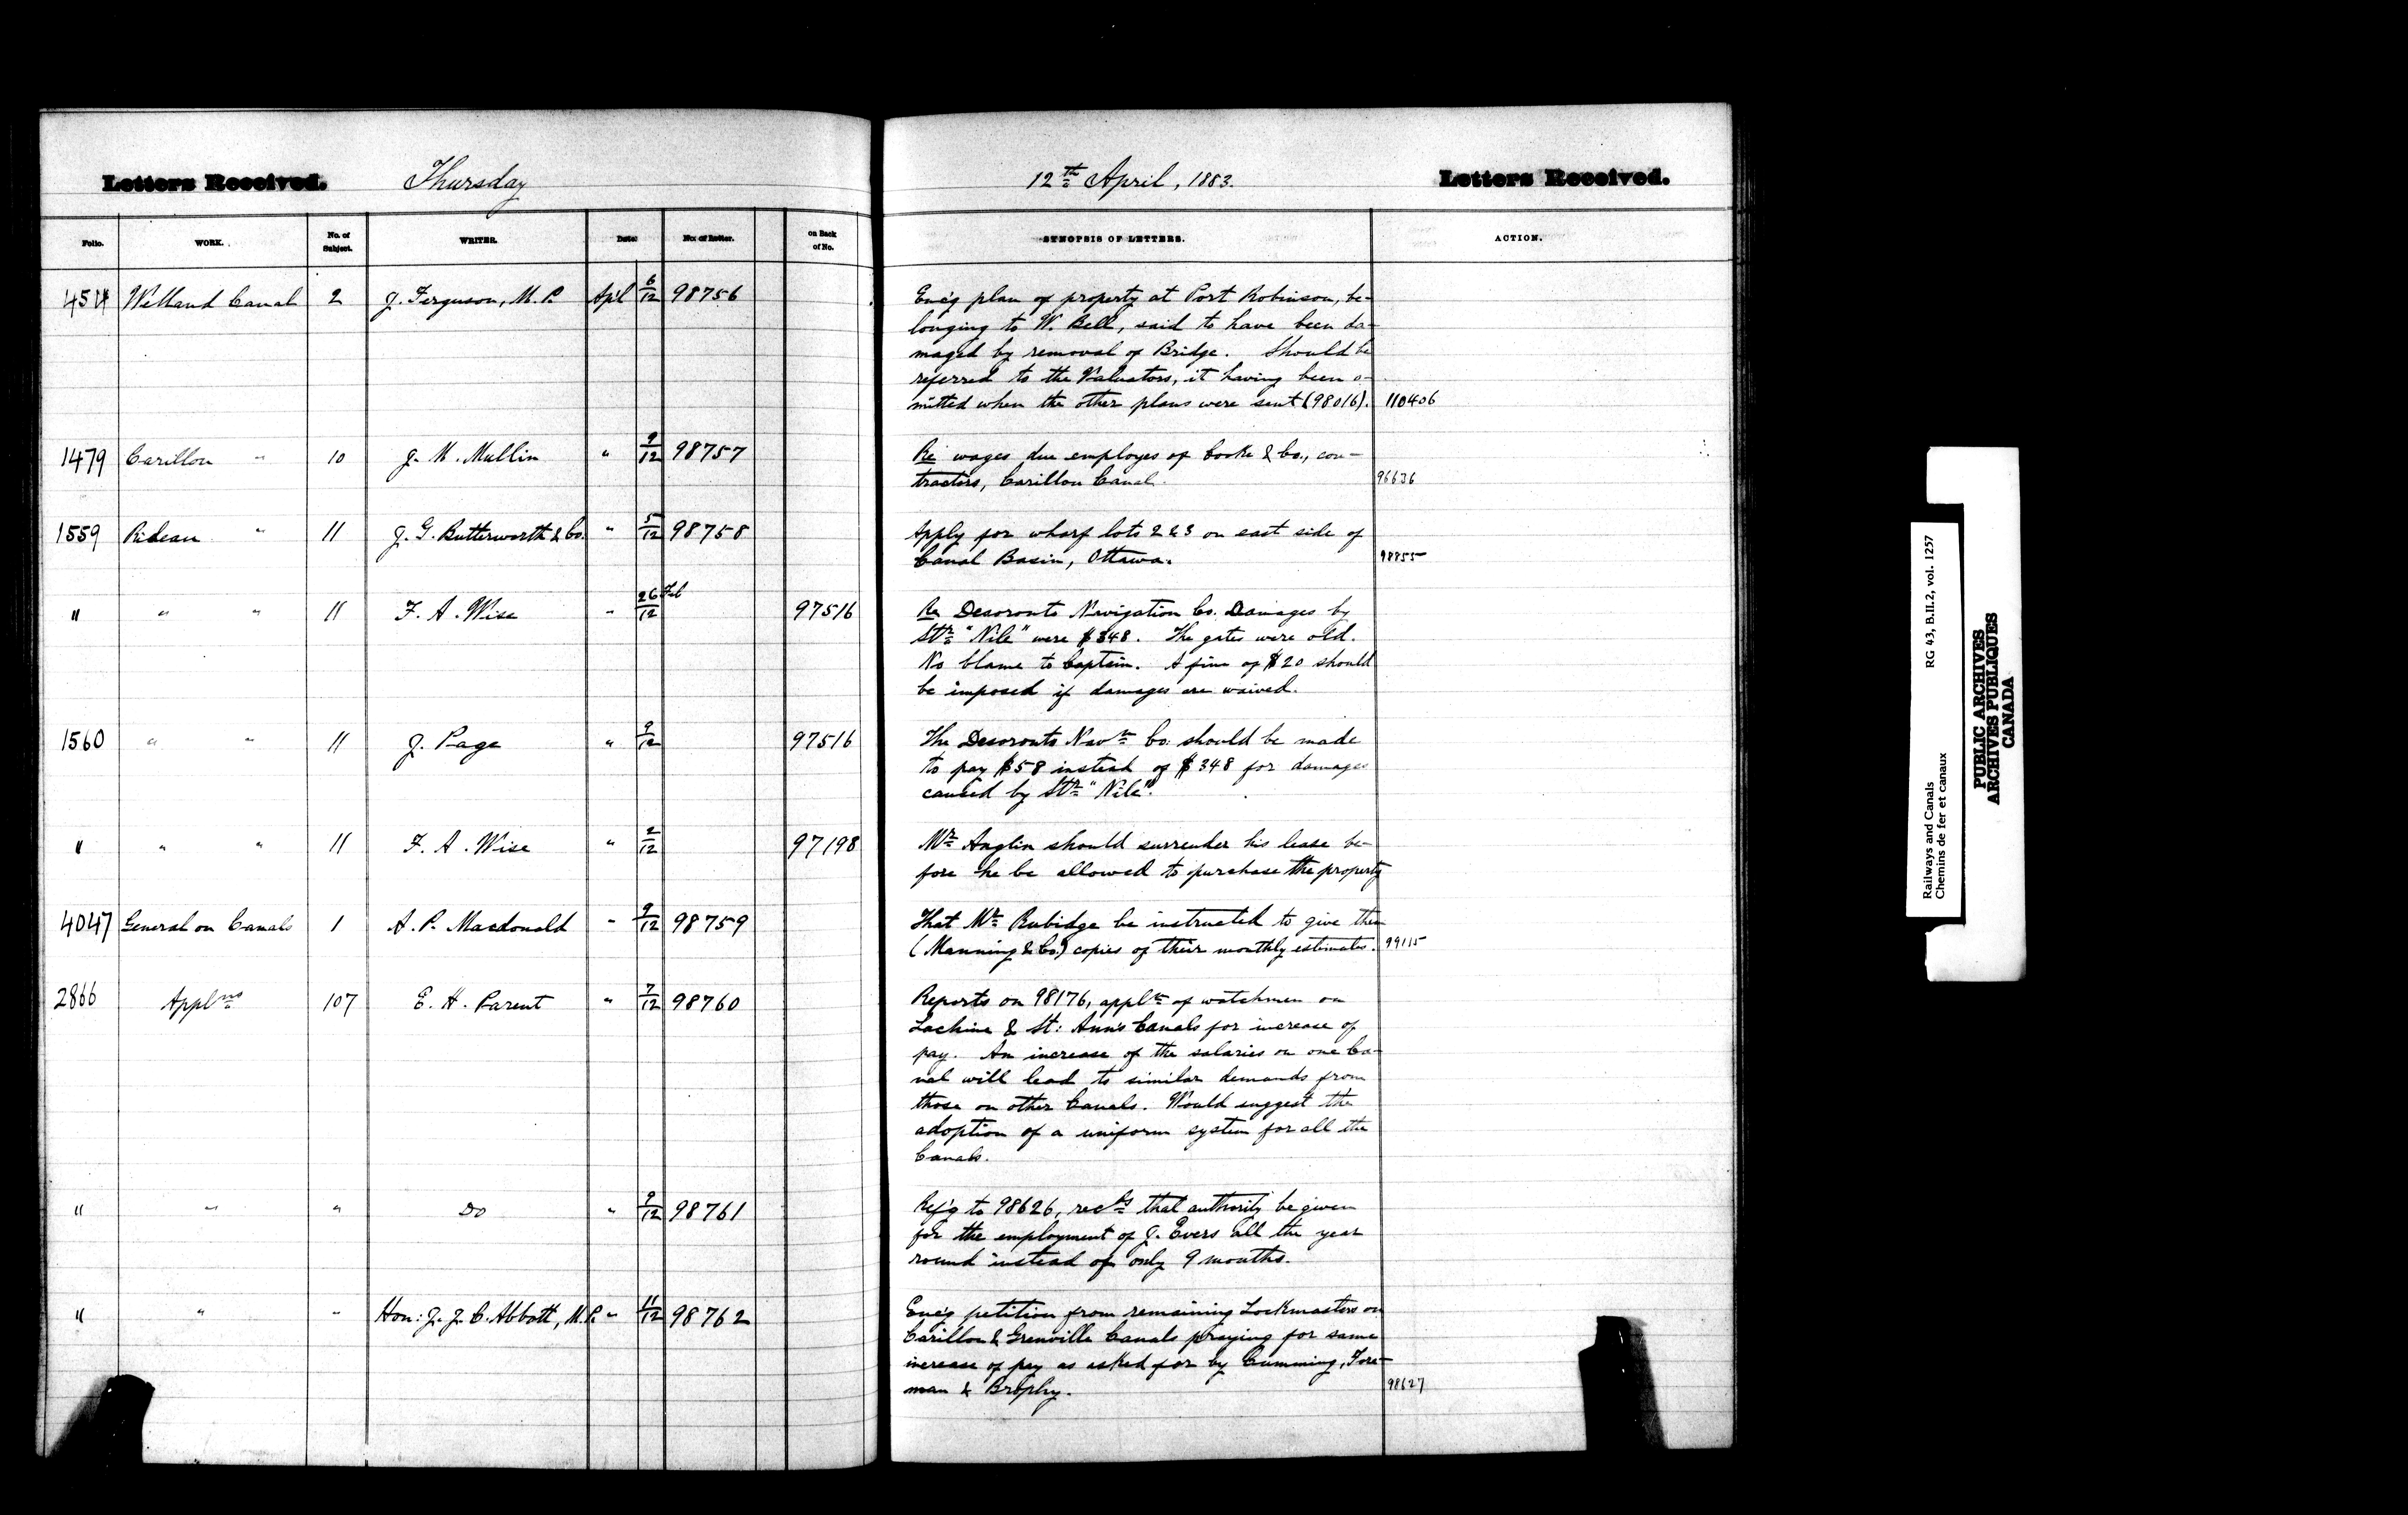 Letters Received. Thursday 12th April, 1883. Letters Received.
Folio. WORK. No. of Subject. WRITER. Date. No. of Letter. on Back of No. SYNOPSIS OF LETTERS. ACTION.
454 Welland Canal 2 J. Ferguson, M.P. Apl 6/12 98756 Enc'g plan of property at Port Robinson, be-
longing to W. Bell, said to have been da-
maged by removal of Bridge. Should be
referred to the Valuators, it having been o-
mitted when the other plans were sent (98016). 110406
1479 Carillon " 10 J. M. Mullin " 9/12 98757 Re wages due employes of Cooke & Co., con-
tractors, Carillon Canal. 96636
1559 Rideau " 11 J. G. Butterworth & Co. " 5/12 98758 Apply for wharf lots 2 & 3 on east side of
Canal Basin, Ottawa. 98855
" " " 11 F. A. Wise " 26 Feb/12 97516 Re Deseronto Navigation Co. Damages by
Str "Nile" were $348. The gates were old.
No blame to Captain. A fine of $20 should
be imposed if damages are waived.
1560 " " 11 J. Page " 9/12 97516 The Deseronto Navn Co. should be made
to pay $58 instead of $348 for damages
caused by Str "Nile".
" " " 11 F. A. Wise " 2/12 97198 Mr Anglin should surrender his lease be-
fore he be allowed to purchase the property
4047 General on Canals 1 A. P. Macdonald " 9/12 98759 That Mr Rubidge be instructed to give them
(Manning & Co.) copies of their monthly estimates. 99115
2866 Applns 107 E. H. Parent " 7/12 98760 Reports on 98176, appln of watchmen on
Lachine & St: Ann's Canals for increase of
pay. An increase of the salaries on one Ca-
nal will lead to similar demands from
those on other Canals. Would suggest the
adoption of a uniform system for all the
Canals.
" " " Do " 9/12 98761 Ref'g to 98626, recds that authority be given
for the employment of J. Evers all the year
round instead of only 9 months.
" " " Hon: J. J. C. Abbott, M.P. " 11/12 98762 Enc'g petition from remaining Lockmasters on
Carillon & Grenville Canals praying for same
increase of pay as asked for by Cumming, Fore-
man & Brophy. 98627
Railways and Canals RG 43, B.II.2, vol. 1257
Chemins de fer et canaux
PUBLIC ARCHIVES
ARCHIVES PUBLIQUES
CANADA